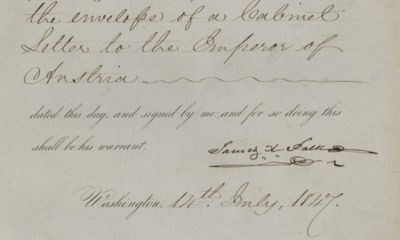 the envelope of a Cabinet
Letter to the Emperor of
Austria
dated this day, and signed by me and for so doing this
shall be his warrant.
James K Polk
Washington, 14th July, 1847.